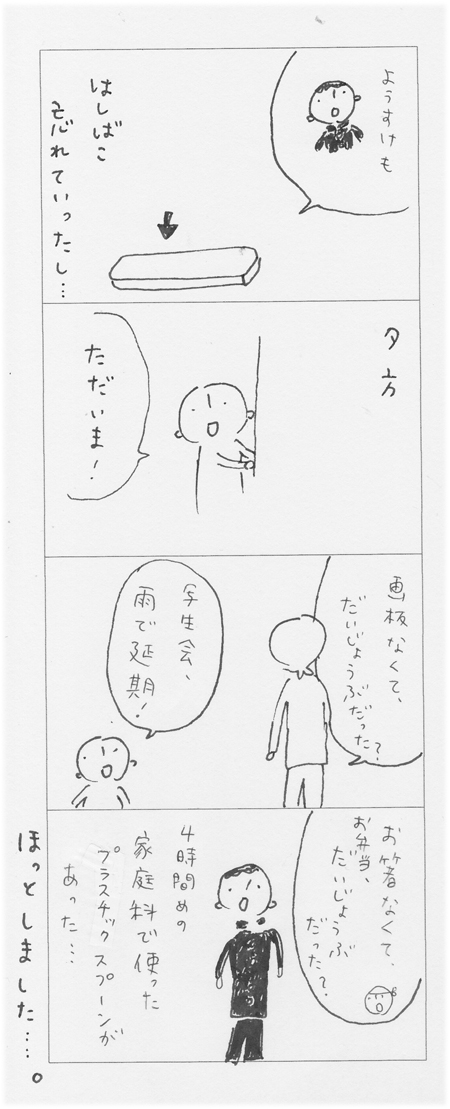 ようすけも
はしばこ
忘れていったし…
夕方
ただいま！
画板なくて、
だいじょうぶだった？
写生会、
雨で延期！
お箸なくて、
お弁当、
だいじょうぶ
だった？
4時間めの
家庭科で使った
プラスチックスプーンが
あった…
ほっとしました……。